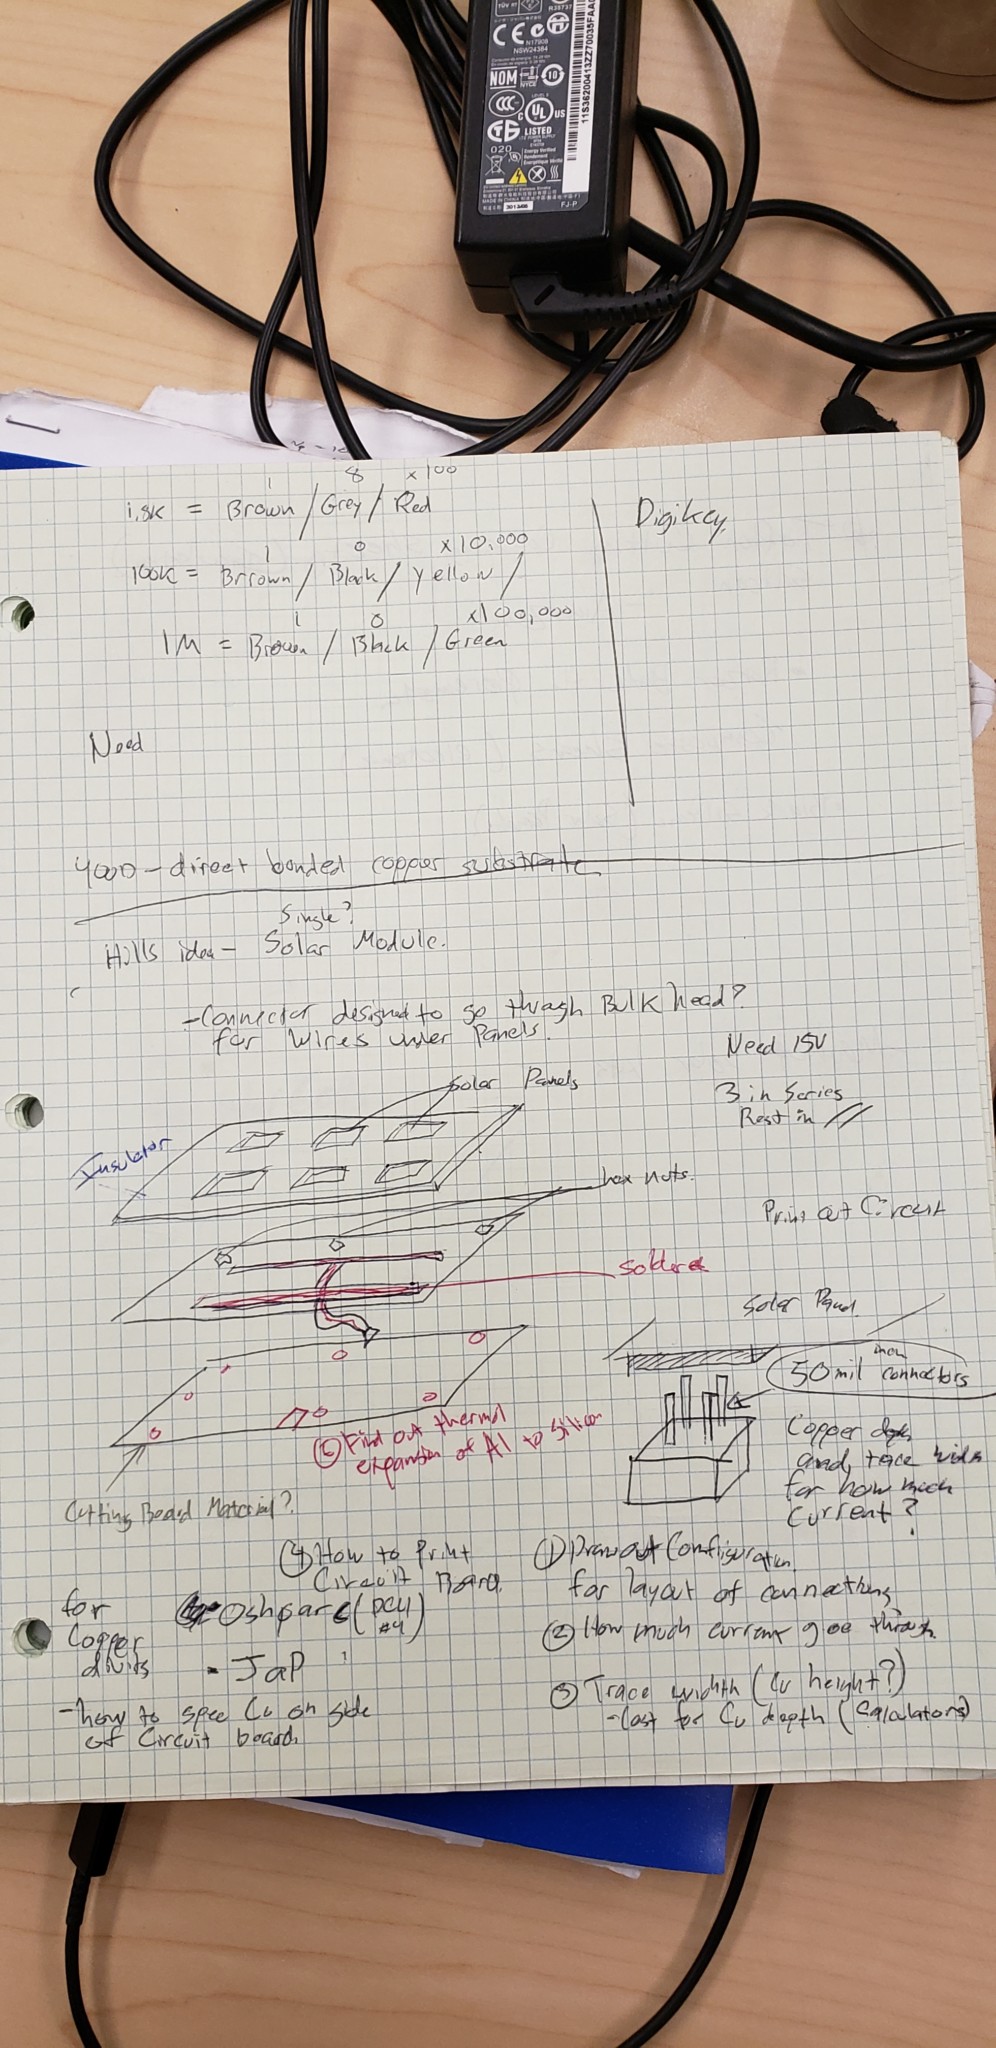 N17908
NSW24384
NOM
NYCE
10
LEVEL 5
CCC
C UL US
LISTED
020
Energy Verified
FJ-P
11S36200413ZZ70035FAA
1 8 x100
1.8K = Brown / Grey / Red
Digikey
1 0 x10,000
100K = Brrown / Black / Yellow /
1 0 x100,000
1M = Brown / Black / Green
Need
direct bonded copper substrate
Single?
Hills idea - Solar Module.
- Connector designed to go through Bulk head?
for Wires under Panels.
Need 15V
Solar Panels
3 in Series
Rest in //
Insulator
hex nuts.
Print out Circuit
Solder
Solar Panel
50 mil connectors
⑤ Find out thermal
expansion of Al to Silicon
Copper depth
and trace width
for how much
current?
Cutting Board Material?
④ How to Print
Circuit Board
① Draw out Configuration
for layout of connections
for
Copper
divits
Oshparc (PCU
#4)
② How much current goes through
- JaP
③ Trace width (Cu height?)
- Cost for Cu depth (Calculators)
- how to spec Cu on side
of Circuit board